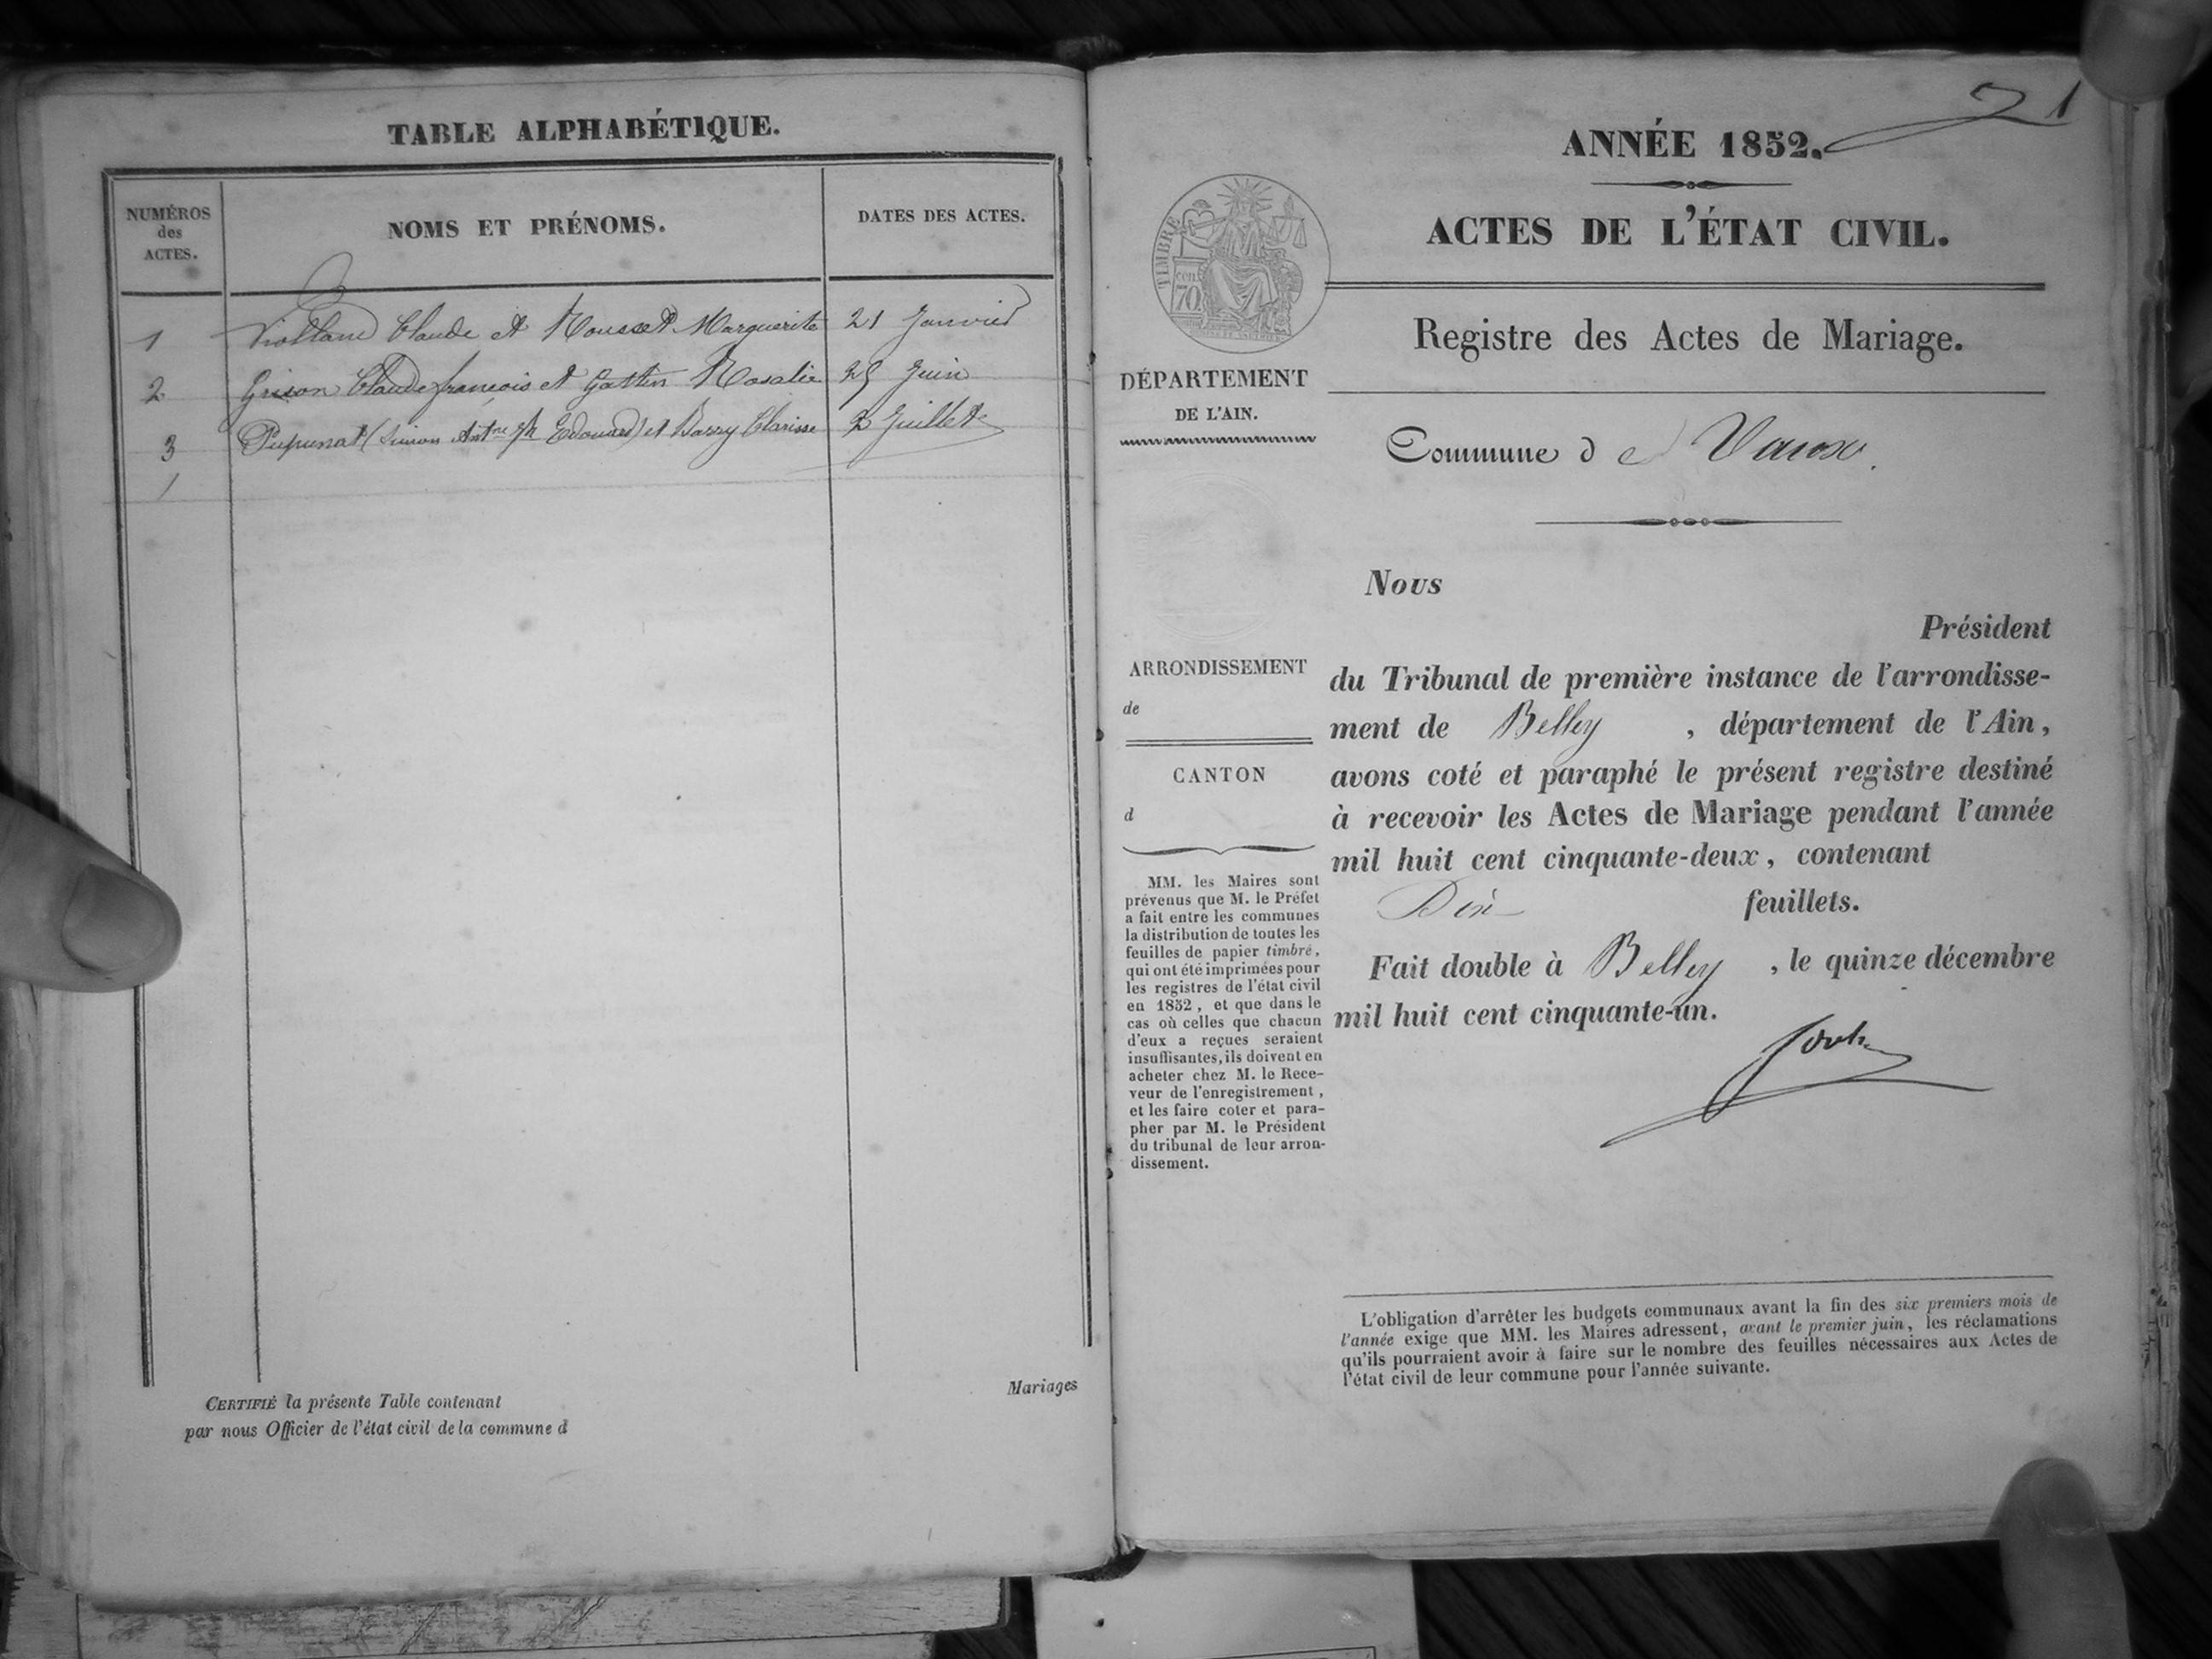 TABLE ALPHABÉTIQUE.
NUMÉROS
des
ACTES.
NOMS ET PRÉNOMS.
DATES DES ACTES.
1 Violland Claude et Rousset Marguerite 21 Janvier
2 Grison Claude françois et Gattin Rosalie 25 Juin
3 Pupunat (Simon Antne Jh Edouard) et Barry Clarisse 2 Juillet
1
CERTIFIÉ la présente Table contenant
par nous Officier de l'état civil de la commune d
Mariages
21
ANNÉE 1852.
ACTES DE L'ÉTAT CIVIL.
TIMBRE
70
Registre des Actes de Mariage.
DÉPARTEMENT
DE L'AIN.
Commune d e Vaux.
Nous
Président
ARRONDISSEMENT
de
CANTON
d
du Tribunal de première instance de l'arrondisse-
ment de Belley , département de l'Ain,
avons coté et paraphé le présent registre destiné
à recevoir les Actes de Mariage pendant l'année
mil huit cent cinquante-deux, contenant
Dix feuillets.
Fait double à Belley , le quinze décembre
mil huit cent cinquante-un.
MM. les Maires sont
prévenus que M. le Préfet
a fait entre les communes
la distribution de toutes les
feuilles de papier timbré,
qui ont été imprimées pour
les registres de l'état civil
en 1852, et que dans le
cas où celles que chacun
d'eux a reçues seraient
insuffisantes, ils doivent en
acheter chez M. le Rece-
veur de l'enregistrement,
et les faire coter et para-
pher par M. le Président
du tribunal de leur arron-
dissement.
L'obligation d'arrêter les budgets communaux avant la fin des six premiers mois de
l'année exige que MM. les Maires adressent, avant le premier juin, les réclamations
qu'ils pourraient avoir à faire sur le nombre des feuilles nécessaires aux Actes de
l'état civil de leur commune pour l'année suivante.